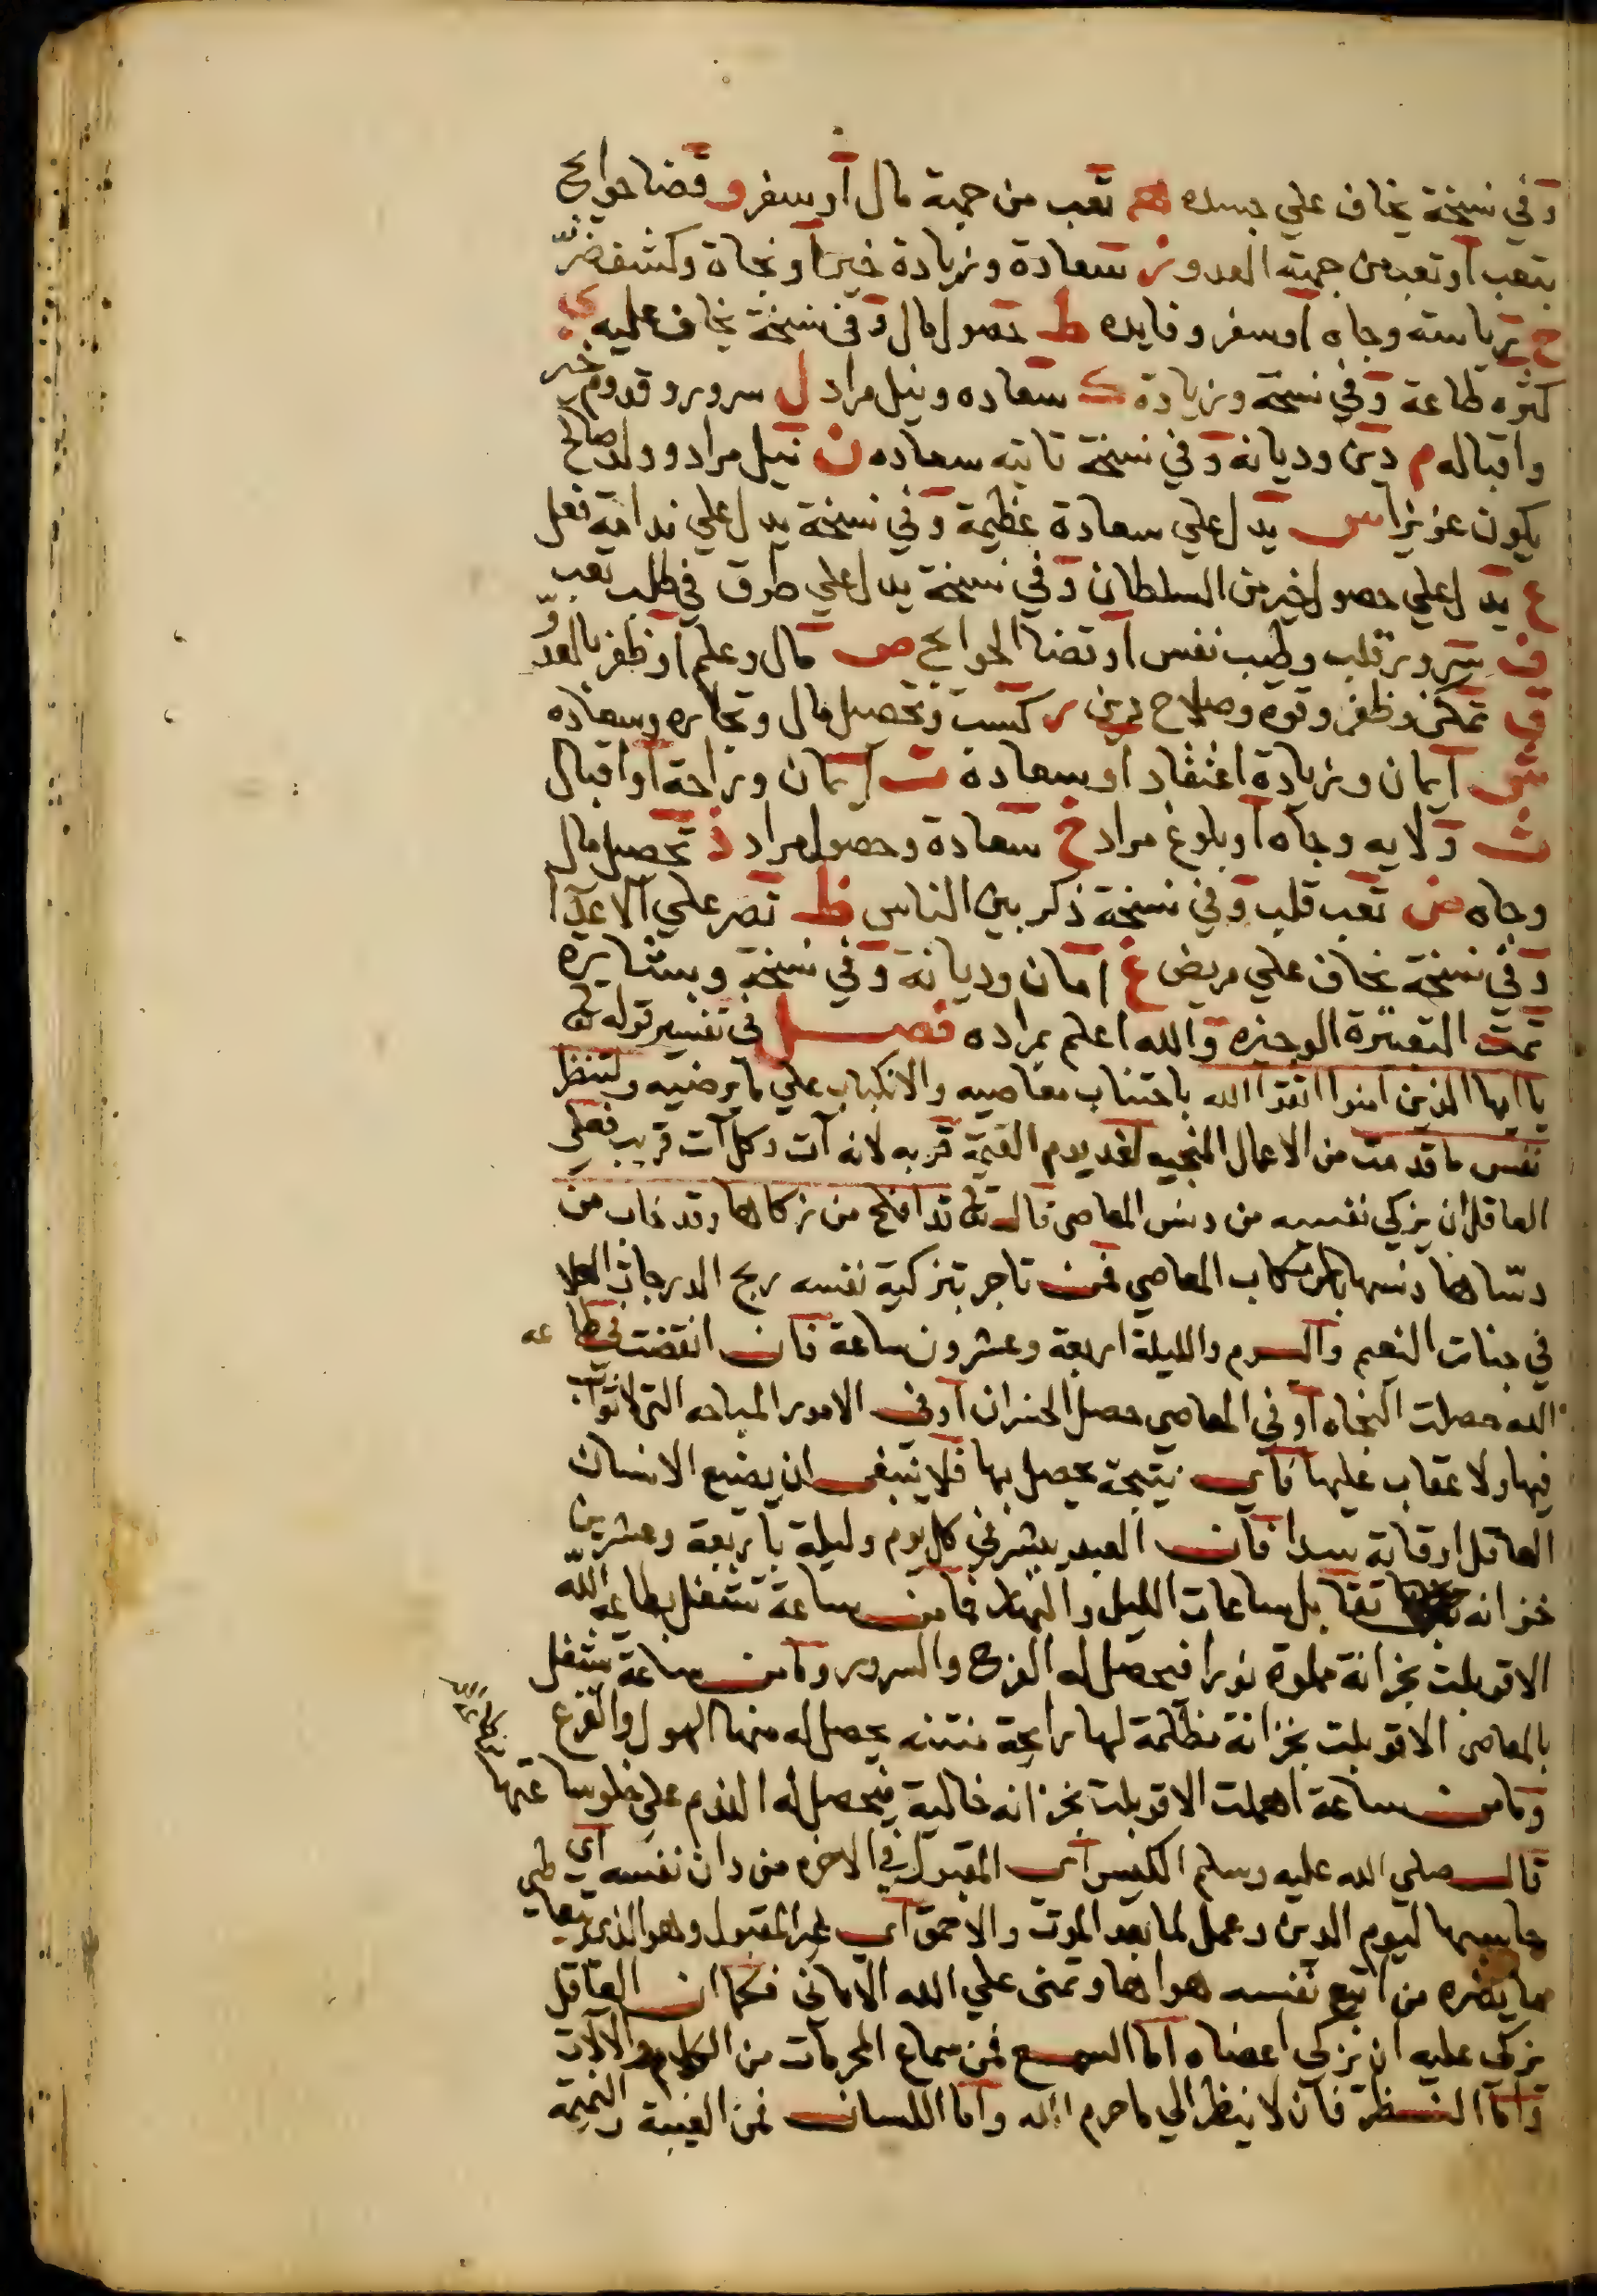 وفي نسخة يخاف علي جسده هـ تعب من جهة مال او سفر و قضا حوايج
بتعب او تعب من جهة العدو ز سعادة وزيادة خير او نجاة وكشف ضر
ح رياسة وجاه او سفر وفايده ط حصول مال وفي نسخة يخاف عليه ي
كثره طاعة وفي نسخة وزيادة خير ك سعاده ونيل مراد ل سرور وقدوم
واقباله م دين وديانه وفي نسخة تاتيه سعاده ن نيل مراد وولد صالح
يكون عزيزا س يدل علي سعادة عظيمة وفي نسخة يدل علي ندامة فعل
ع يدل علي حصول خير من السلطان وفي نسخة يدل علي طرق في طلب تعب
ف سرور قلب وطيب نفس او قضا الحوايج ص مال وعلم او ظفر بالعدو
ق تمكن وظفر وقوه وصلاح دين ر كسب وتحصيل مال وتجاره وسعاده
ش ايمان وزيادة اعتقاد او سعادة ت ايمان وراحة او اقبال
ث ولايه وجاه او بلوغ مراد خ سعادة وحصول مراد ذ تحصيل مال
وجاه ض تعب قلب وفي نسخة ذكر بين الناس ظ نصر علي الاعدا
وفي نسخة يخاف علي مريض غ امان وديانة وفي نسخة وبشاره
تمت التعبيرة الوجيزه والله اعلم بمراده فصل في تفسير قوله تعالى
يا ايها الذين امنوا اتقوا الله باجتناب معاصيه والانكباب علي ما يرضيه ولتنظر
نفس ما قدمت من الاعمال المنجيه لغد يوم القيمة قربه لانه آت وكل آت قريب فعلى
العاقل ان يزكي نفسه من دنس المعاصي قال تعالى قد افلح من زكاها وقد خاب من
دساها دنسها بارتكاب المعاصي فمن تاجر بتزكية نفسه ربح الدرجات العلا
في جنات النعيم واليوم والليلة اربعة وعشرون ساعة فان انقضت في طاعه
الله حصلت النجاه او في المعاصي حصل الخسران او في الامور المباحه التي لا ثواب
فيها ولا عقاب عليها فاي نتيجة يحصل بها فلا ينبغي ان يضيع الانسان
العاقل اوقاته سدا فان العبد يبشر في كل يوم وليلة باربعة وعشرين
خزانه تقابل ساعات الليل والنهار فما من ساعة تشغل بطاعة الله
الا قوبلت بخزانة مملوة نورا فيحصل له الفرح والسرور وما من ساعة تشغل
بالمعاصي الا قوبلت بخزانة مظلمة لها رايحة منتنه يحصل له منها الهول والفزع
وما من ساعة اهملت الا قوبلت بخزانه خالية فيحصل له الندم علي خلو ساعتها
قال صلي الله عليه وسلم الكيس اي المقبول في الاخره من دان نفسه اي
حاسبها ليوم الدين وعمل لما بعد الموت والاحمق اي غير المقبول وهو الذي
ما يضره من اتبع نفسه هواها وتمنى علي الله الاماني فكما ان العاقل
يزكي عليه ان يزكي اعضاه اما السمع فمن سماع المحرمات من الكلام والالات
واما النظر فان لا ينظر الي ما حرم الله واما اللسان فمن الغيبة والنميمه